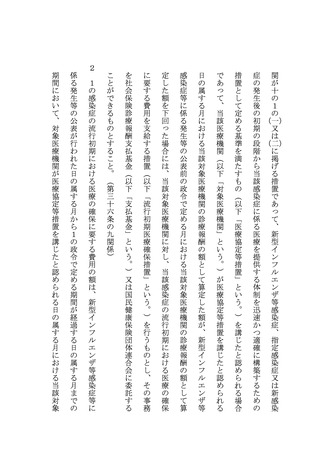 関が十の1の㈠又は㈡に掲げる措置であって、新型インフルエンザ等感染症、指定感染症又は新感染
症の発生後の初期の段階から当該感染症に係る医療を提供する体制を迅速かつ適確に構築するための
措置として定める基準を満たすもの（以下「医療協定等措置」という。）を講じたと認められる場合
であって、当該医療機関（以下「対象医療機関」という。）が医療協定等措置を講じたと認められる
日の属する月における当該対象医療機関の診療報酬の額として算定した額が、新型インフルエンザ等
感染症等に係る発生等の公表前の政令で定める月における当該対象医療機関の診療報酬の額として算
定した額を下回った場合には、当該対象医療機関に対し、当該感染症の流行初期における医療の確保
に要する費用を支給する措置（以下「流行初期医療確保措置」という。）を行うものとし、その事務
を社会保険診療報酬支払基金（以下「支払基金」という。）又は国民健康保険団体連合会に委託する
ことができるものとすること。（第三十六条の九関係）
2　1の感染症の流行初期における医療の確保に要する費用の額は、新型インフルエンザ等感染症等に
係る発生等の公表が行われた日の属する月から1の政令で定める期間が経過する日の属する月までの
期間において、対象医療機関が医療協定等措置を講じたと認められる日の属する月における当該対象